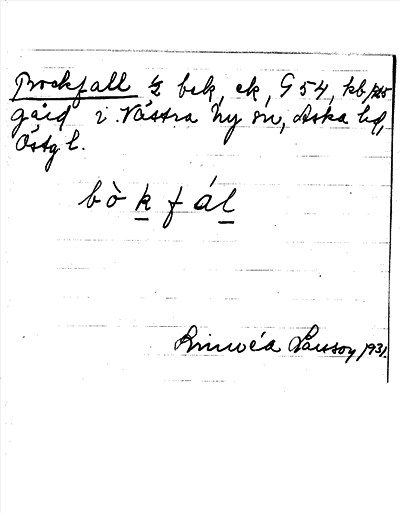 Bockfall ½ bck, ek, G 54, kb,
gård i Västra Ny sn, Aska hd,
Östg l.
bòkfál
Linnéa Larsson 1931.